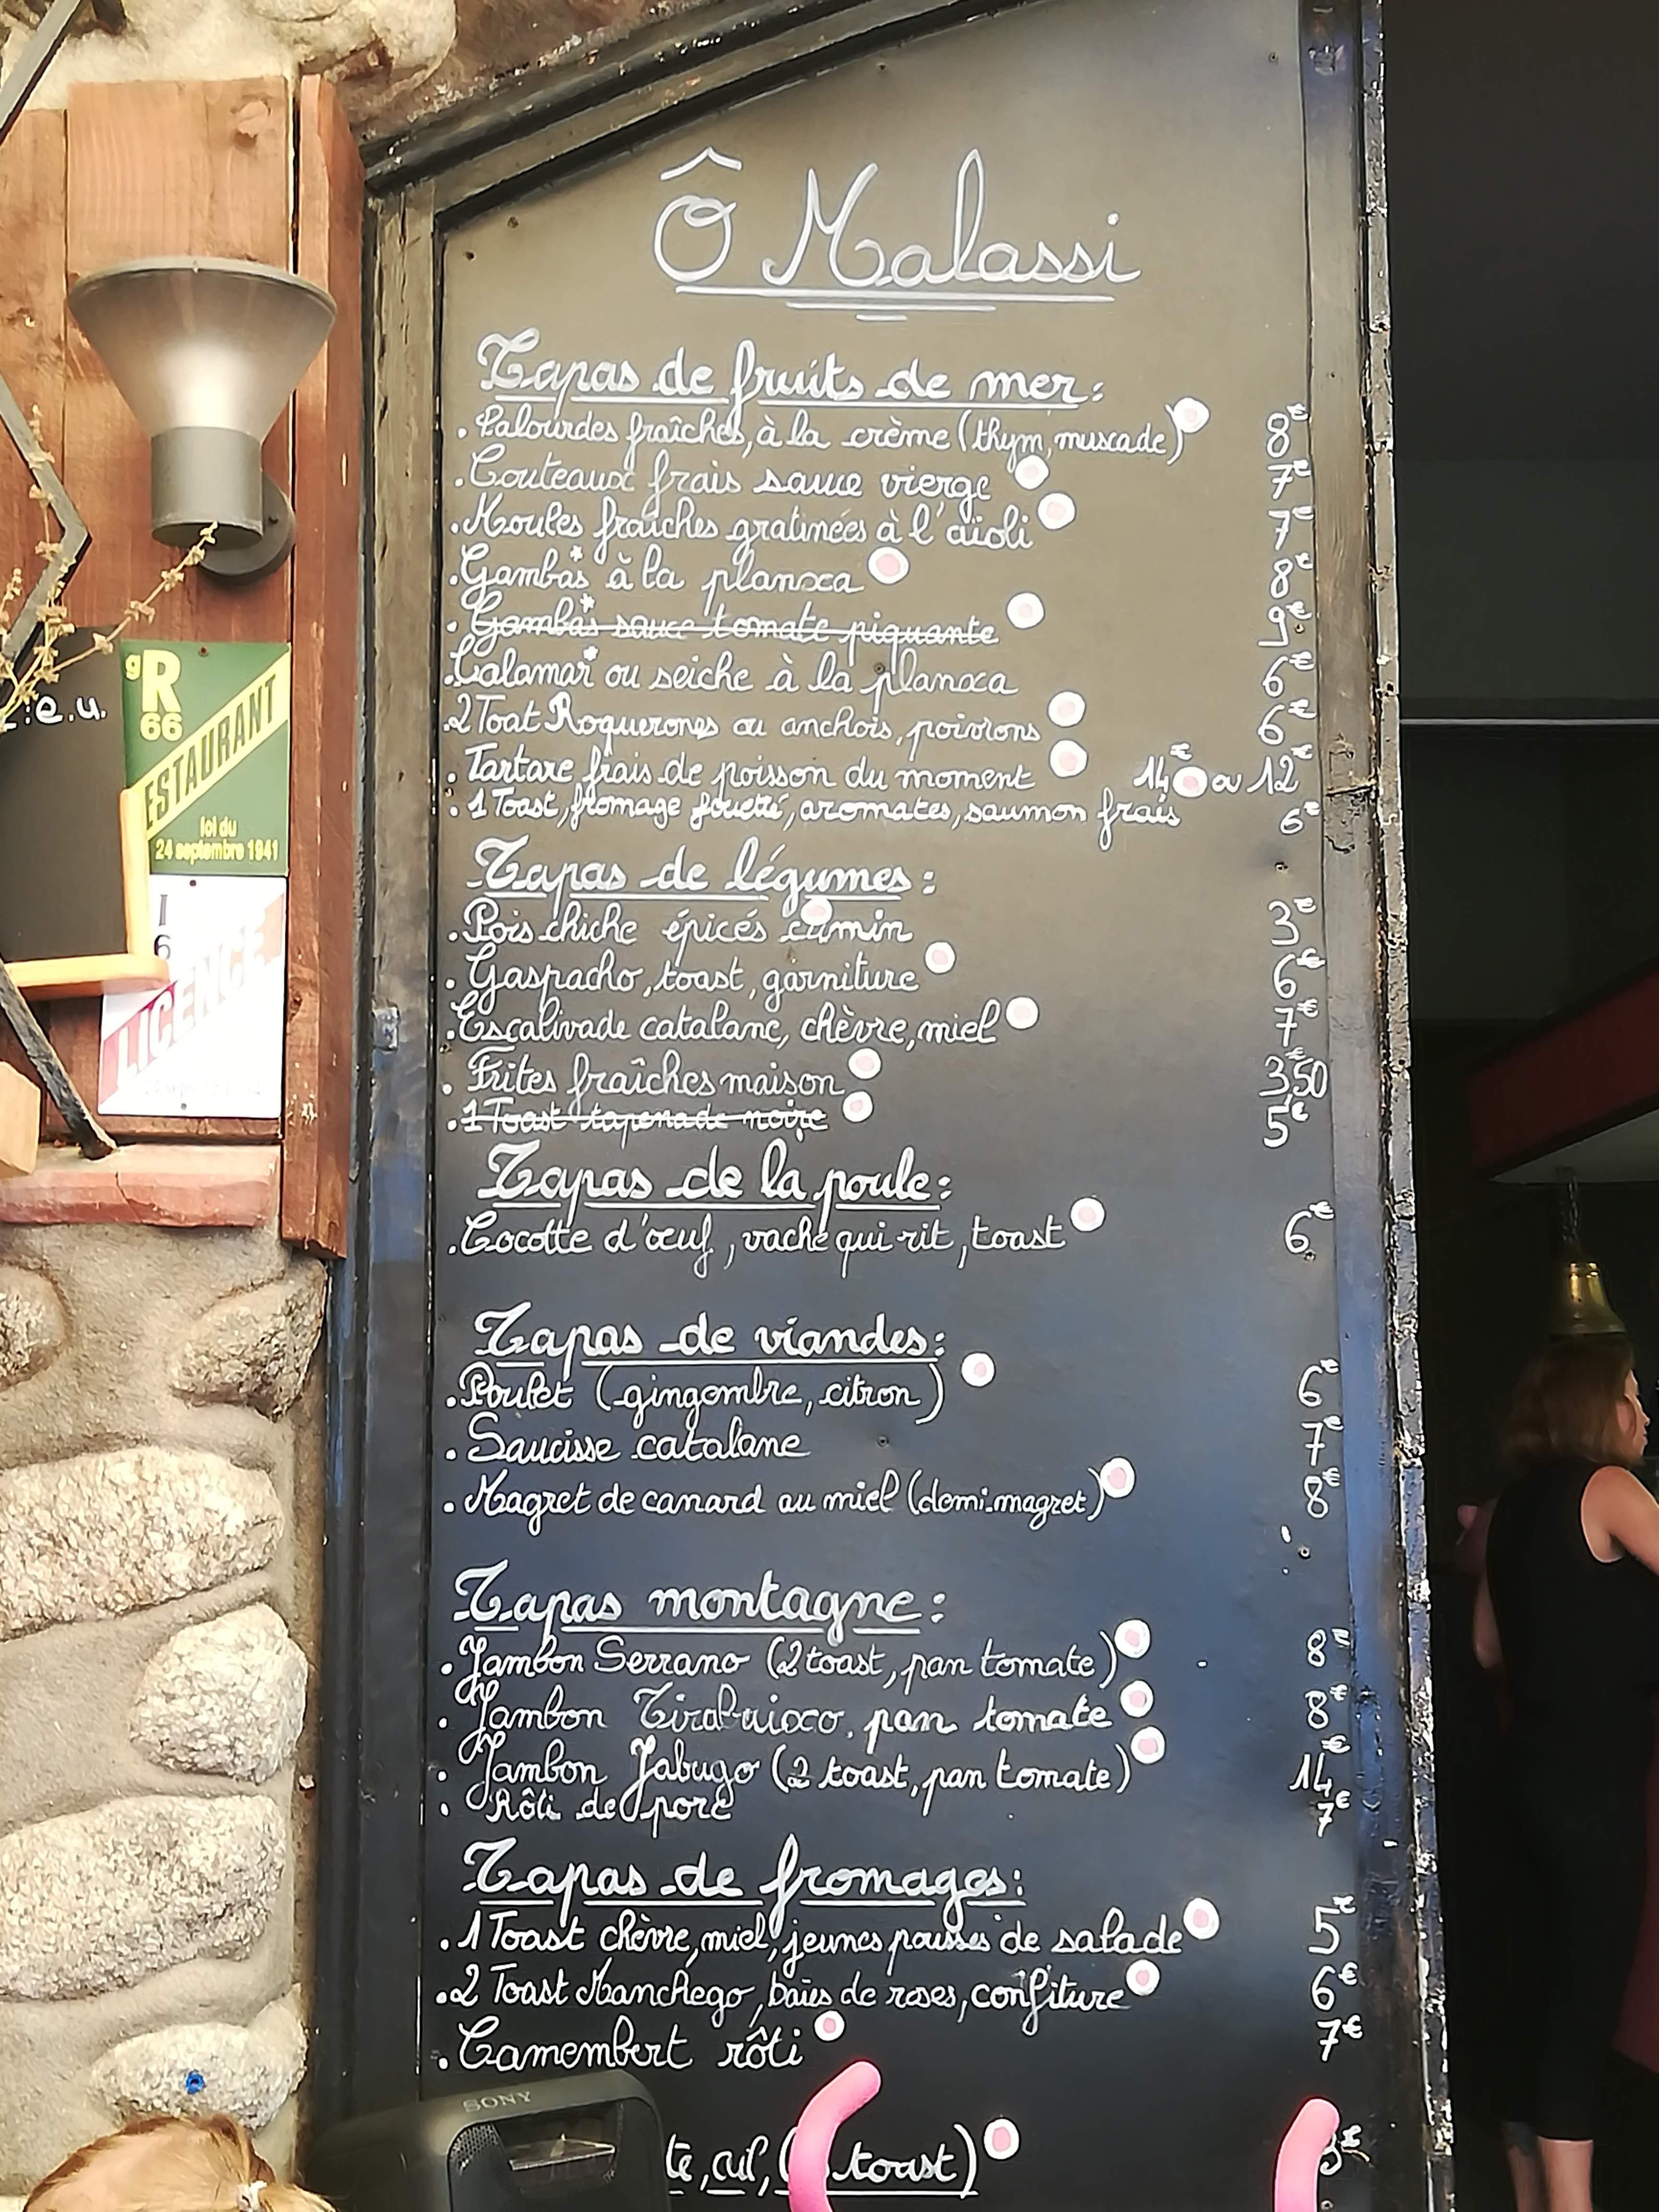 Ô Malassi
Tapas de fruits de mer:
. Palourdes fraîches, à la crème (thym, muscade) 8€
. Couteaux frais sauce vierge 7€
. Moules fraîches gratinées à l'aïoli 7€
. Gambas* à la planxa 8€
. Gambas* sauce tomate piquante 9€
. Calamar* ou seiche à la planxa 6€
. 2 Toat Roquerones ou anchois, poivrons 6€
. Tartare frais de poisson du moment 14€ ou 12€
. 1 Toast, fromage fouetté, aromates, saumon frais 6€
Tapas de légumes:
. Pois chiche épicés cumin 3€
. Gaspacho, toast, garniture 6€
. Escalivade catalane, chèvre, miel 7€
. Frites fraîches maison 3€50
. 1 Toast tapenade noire 5€
Tapas de la poule:
. Cocotte d'œuf, vache qui rit, toast 6€
Tapas de viandes:
. Poulet (gingembre, citron) 6€
. Saucisse catalane 7€
. Magret de canard au miel (demi-magret) 8€
Tapas montagne:
. Jambon Serrano (2 toast, pan tomate) 8€
. Jambon pan tomate 8€
. Jambon Jabugo (2 toast, pan tomate) 14€
. Rôti de porc 7€
Tapas de fromages:
. 1 Toast chèvre, miel, jeunes pousses de salade 5€
. 2 Toast Manchego, baies de roses, confiture 6€
. Camembert rôti 7€
toast)
SONY
e.u.
gR
66
RESTAURANT
loi du
24 septembre 1941
LICENCE